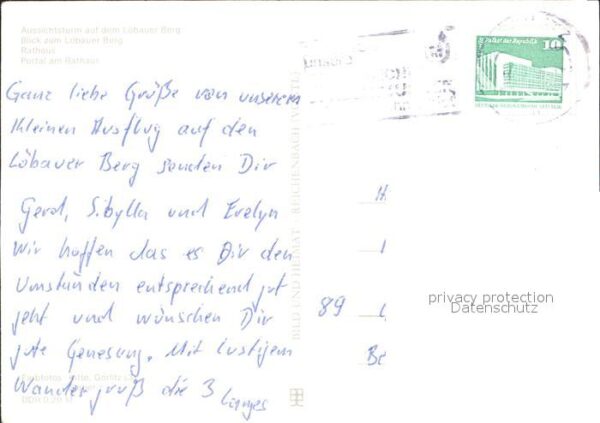 Aussichtsturm auf dem Löbauer Berg
Blick zum Löbauer Berg
Rathaus
Portal am Rathaus
Palast der Republik
10
Ganz liebe Grüße von unserem
kleinen Ausflug auf den
Löbauer Berg senden Dir
Gerd, Sibylla und Evelyn
Wir hoffen das es Dir den
Umständen entsprechend gut
geht und wünschen Dir
gute Genesung. Mit lustigem
Wandergruß die 3
BILD UND HEIMAT REICHENBACH
89
privacy protection
Datenschutz